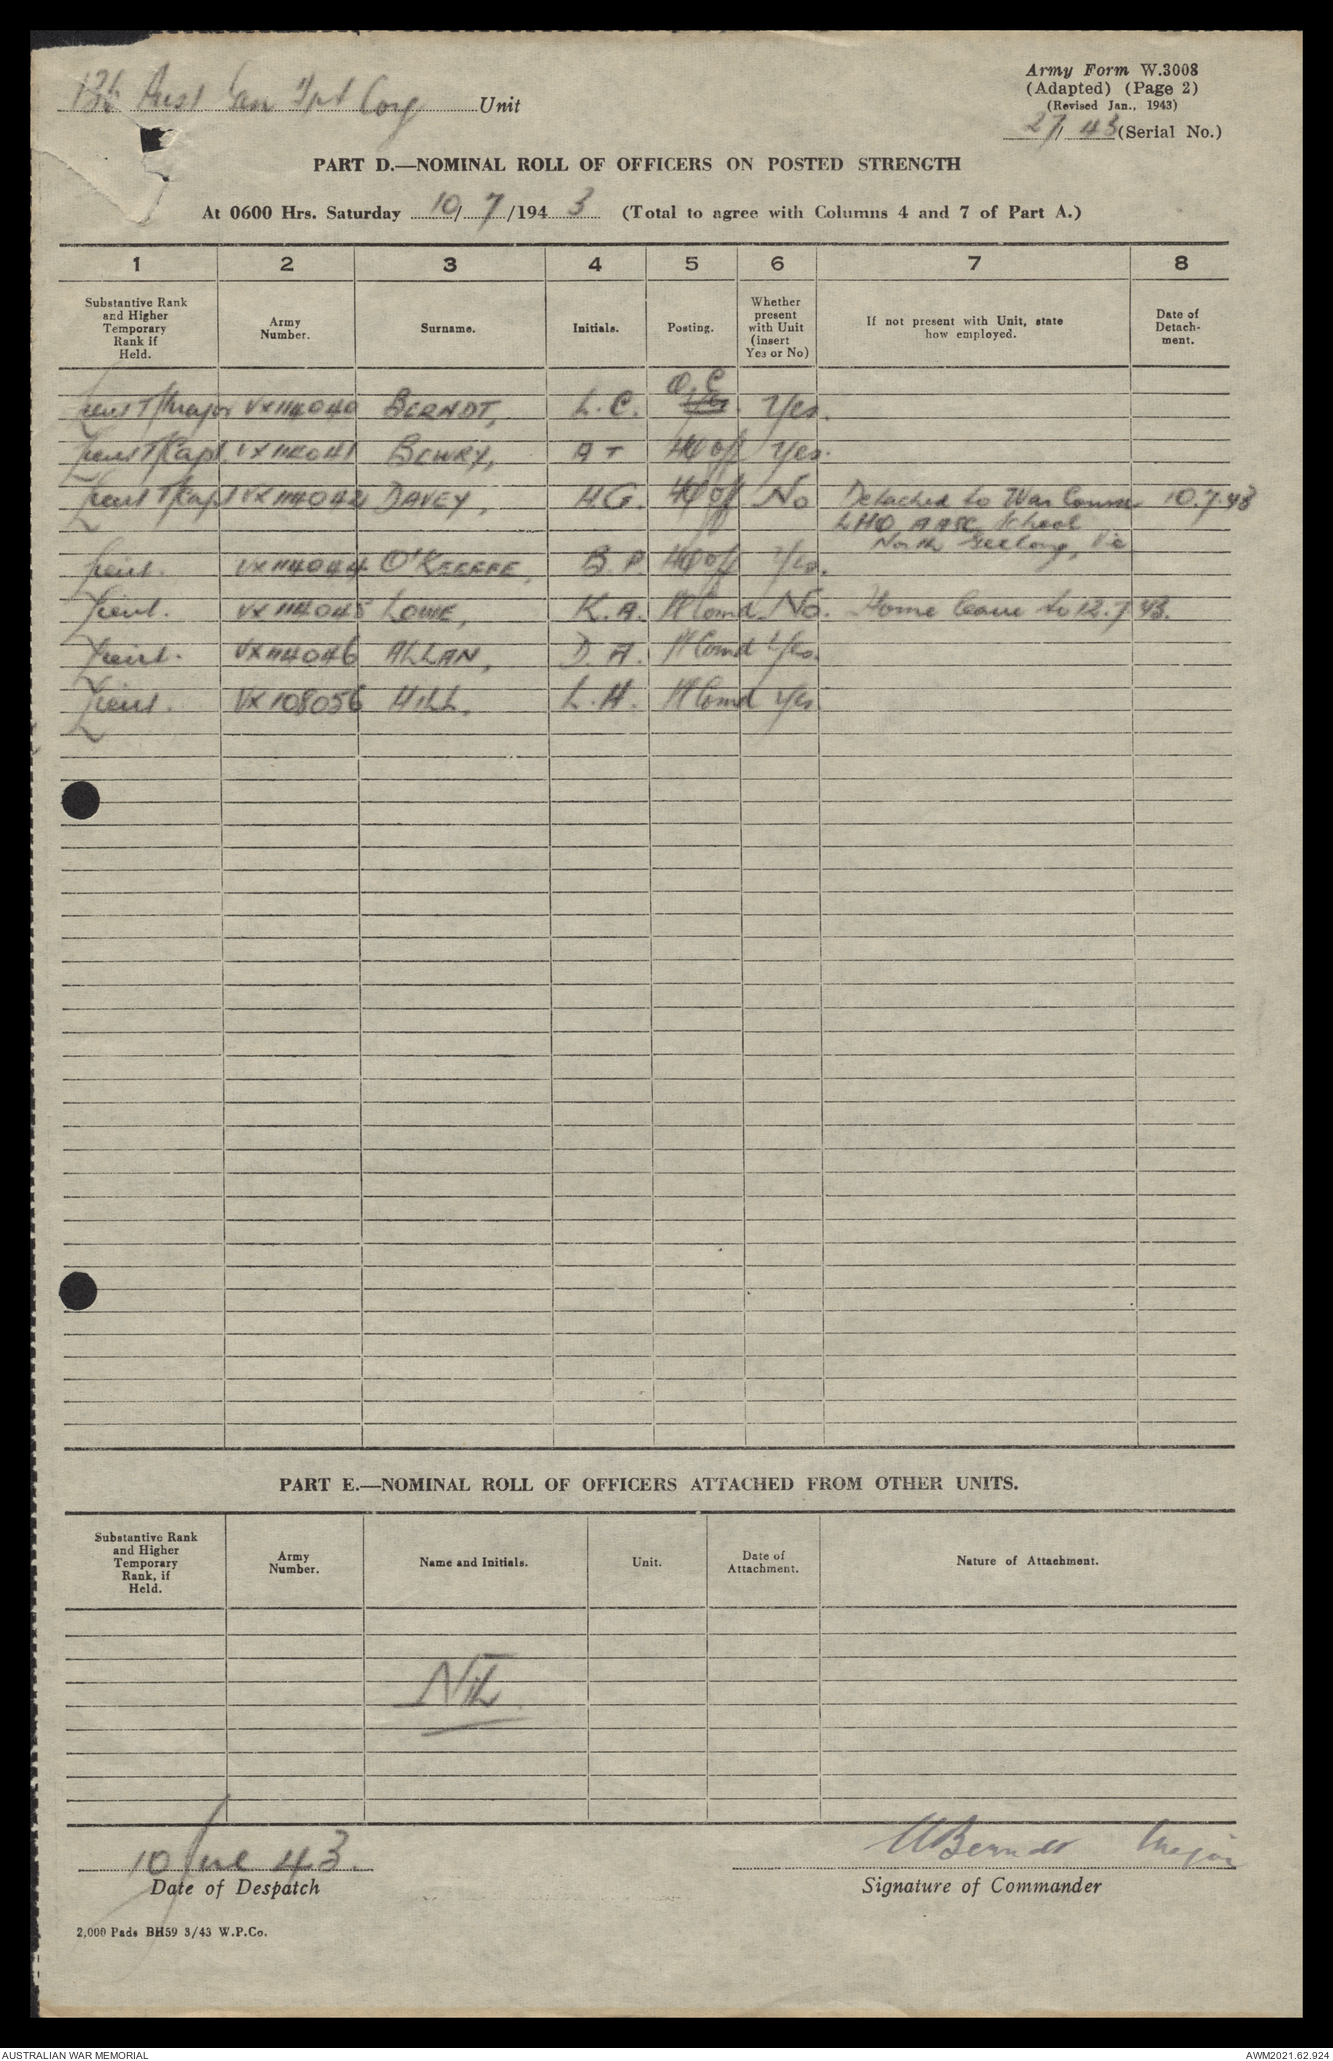 136 Aust Gen Tpt Coy Unit
Army Form W.3008
(Adapted) (Page 2)
(Revised Jan., 1943)
27/43 (Serial No.)
PART D.—NOMINAL ROLL OF OFFICERS ON POSTED STRENGTH
At 0600 Hrs. Saturday 10/7/1943 (Total to agree with Columns 4 and 7 of Part A.)
1 2 3 4 5 6 7 8
Substantive Rank and Higher Temporary Rank if Held. Army Number. Surname. Initials. Posting. Whether present with Unit (insert Yes or No) If not present with Unit, state how employed. Date of Detachment.
Lieut T/Major VX114040 BERNDT, L.C. O.C. Yes.
Lieut T/Capt. VX114041 BEWRY, A T HQ off Yes.
Lieut T/Capt VX114042 DAVEY, H.G. HQ off No Detached to War Course 10.7.43
LHQ AASC School
North Geelong, Vic
Lieut. VX114044 O'KEEFFE, B.P. HQ off Yes.
Lieut. VX114045 LOWE, K.A. Pl Comd. No. Home leave to 12.7.43.
Lieut. VX114046 ALLAN, D.A. Pl Comd Yes.
Lieut. VX108056 HILL, L.H. Pl Comd Yes
PART E.—NOMINAL ROLL OF OFFICERS ATTACHED FROM OTHER UNITS.
Substantive Rank and Higher Temporary Rank, if Held. Army Number. Name and Initials. Unit. Date of Attachment. Nature of Attachment.
NIL
10 Jul 43. LCBerndt Major
Date of Despatch Signature of Commander
2,000 Pads BH59 3/43 W.P.Co.
AUSTRALIAN WAR MEMORIAL AWM2021.62.924